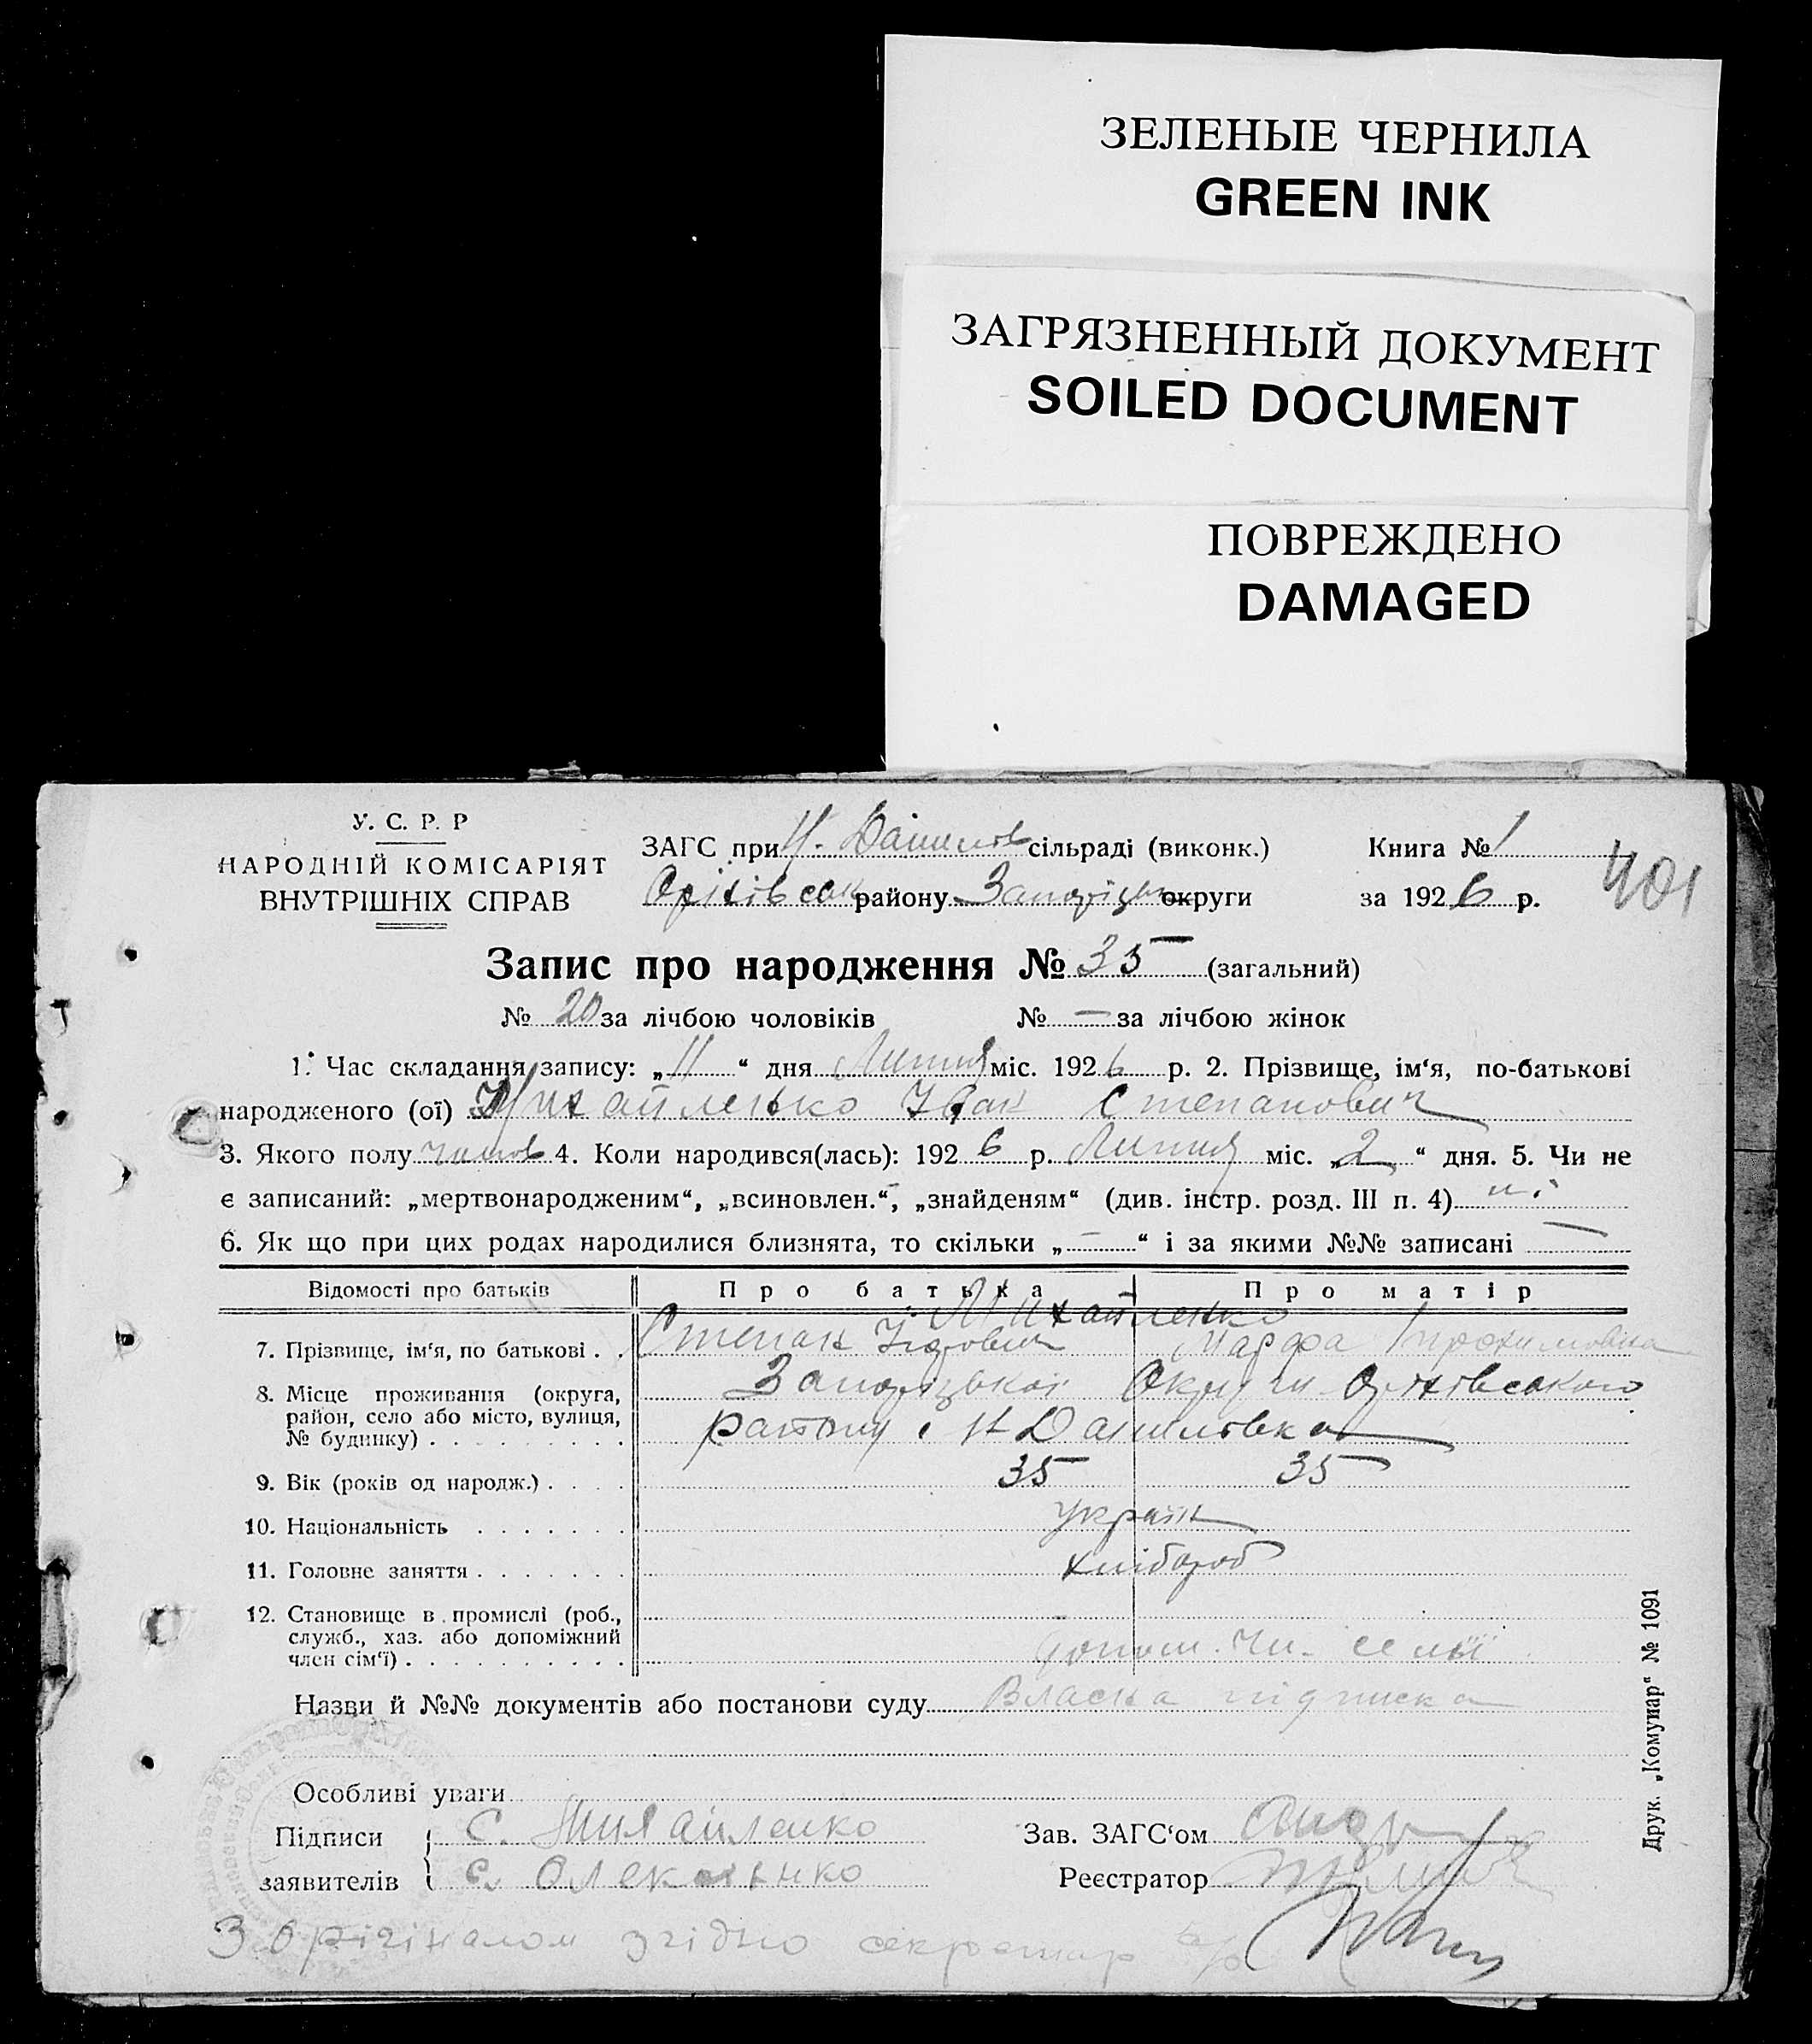 ЗЕЛЕНЫЕ ЧЕРНИЛА
GREEN INK
ЗАГРЯЗНЕННЫЙ ДОКУМЕНТ
SOILED DOCUMENT
ПОВРЕЖДЕНО
DAMAGED
У. С. Р. Р
НАРОДНІЙ КОМІСАРІЯТ
ВНУТРІШНІХ СПРАВ
ЗАГС при Н. Данилов сільраді (виконк.)
Оріхівськ району Запоріцьк округи
Книга № 1
за 1926 р.
401
Запис про народження № 35 (загальний)
№ 20 за лічбою чоловіків № — за лічбою жінок
1. Час складання запису: „11“ дня Липня міс. 1926 р. 2. Прізвище, ім‘я, по-батькові
народженого (ої) Михайленко Іван Степанович
3. Якого полу чолов 4. Коли народився(лась): 1926 р. Липня міс. „2“ дня. 5. Чи не
є записаний: „мертвонародженим“, „всиновлен.“, „знайденям“ (див. інстр. розд. III п. 4) ні
6. Як що при цих родах народилися близнята, то скільки „—“ і за якими №№ записані —
Відомості про батьків Про батька Про матір
Михайленко
7. Прізвище, ім‘я, по батькові . . Степан Марфа
8. Місце проживання (округа, Запоріцької Округи Оріхівського
район, село або місто, вулиця,
№ будинку) . . . . . . . . . району с Н Данилівка
9. Вік (років од народж.) . . . . 35 35
10. Національність . . . . . . . україн
11. Головне заняття . . . . . . . хлібороб
12. Становище в промислі (роб.,
служб., хаз. або допоміжний
член сім‘ї) . . . . . . . . . . допом. чл. семьї
Назви й №№ документів або постанови суду Власна підписка
Особливі уваги
Підписи С. Михайленко
заявителів с.
Зав. ЗАГС‘ом
Реєстратор
З орігіналом згідно секретар
Друк. „Комунар“ № 1091